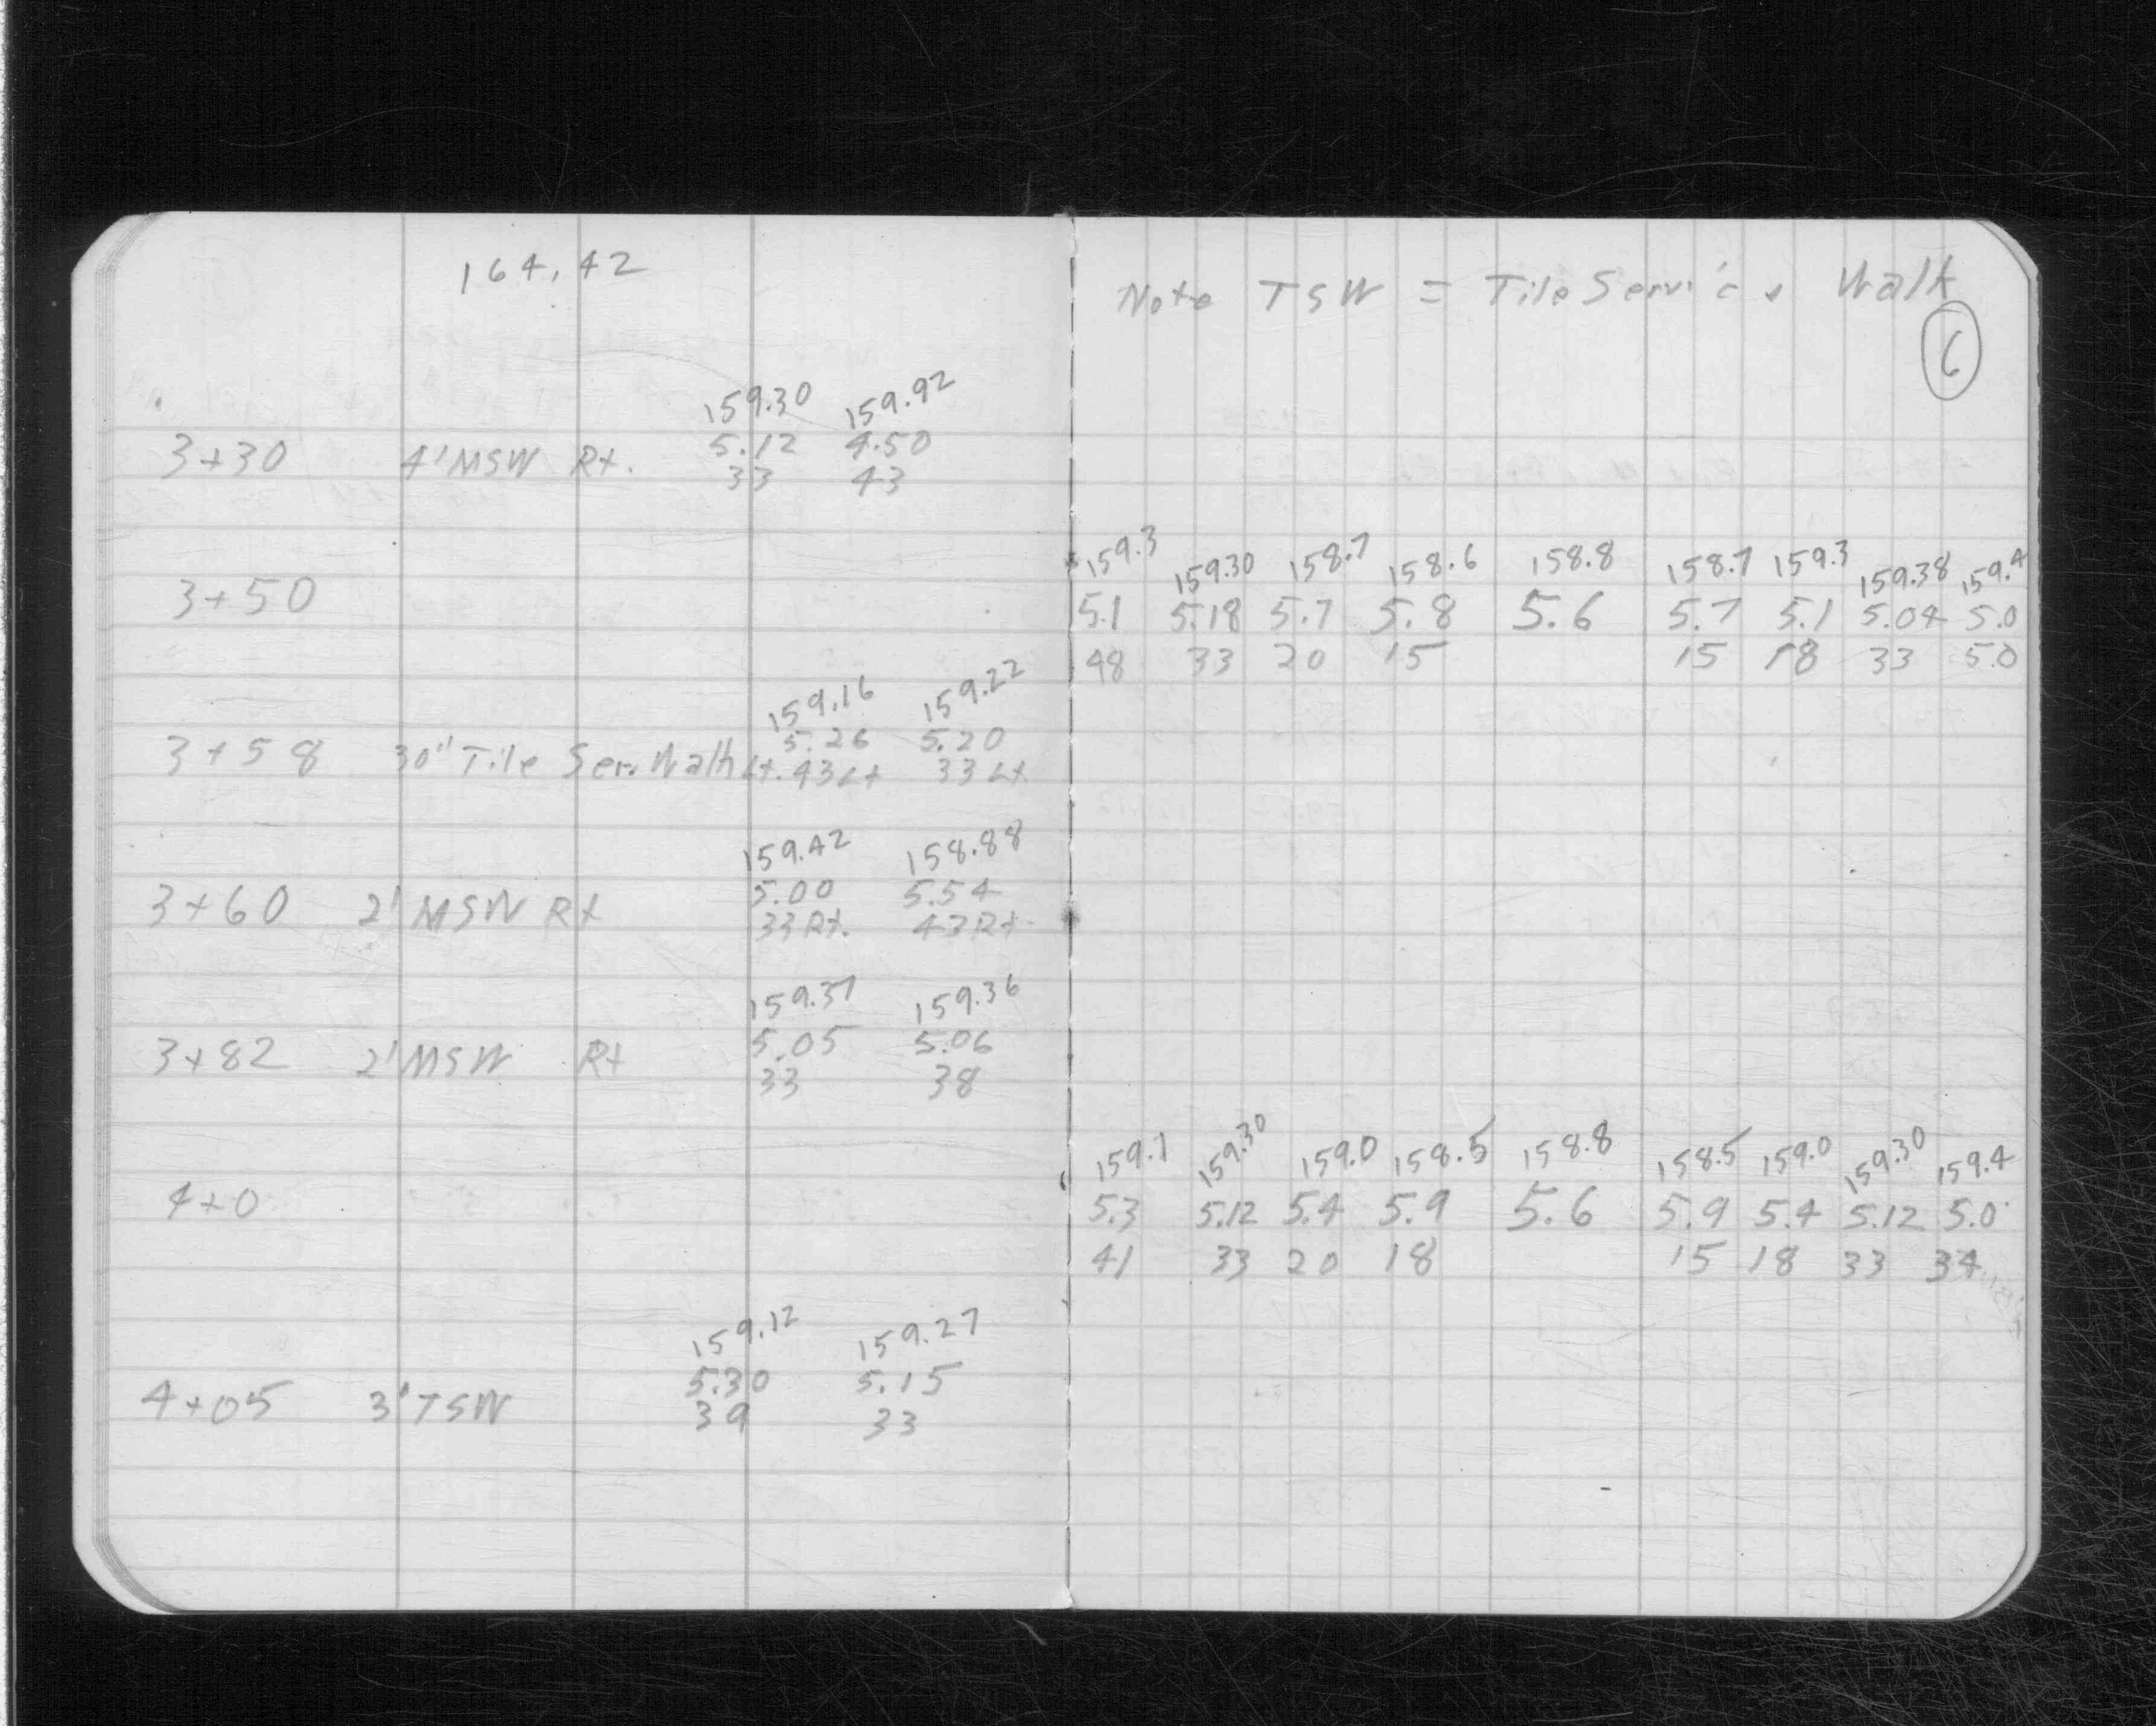 164.42
159.30 159.92
5.12 4.50
3+30 4' MSW Rt. 33 43
3+50
159.16 159.22
5.26 5.20
3+58 30" Tile Ser. Walk Lt. 43 Lt 33 Lt
159.42 158.88
5.00 5.54
3+60 2' MSW Rt 33 Rt. 43 Rt.
159.37 159.36
5.05 5.06
3+82 2' MSW Rt 33 38
4+0
159.12 159.27
5.30 5.15
4+05 3' TSW 39 33
Note TSW = Tile Service Walk
6
159.3 159.30 158.7 158.6 158.8 158.7 159.3 159.38 159.4
5.1 5.18 5.7 5.8 5.6 5.7 5.1 5.04 5.0
48 33 20 15 15 18 33 50
159.1 159.30 159.0 158.5 158.8 158.5 159.0 159.30 159.4
5.3 5.12 5.4 5.9 5.6 5.9 5.4 5.12 5.0
41 33 20 18 15 18 33 34